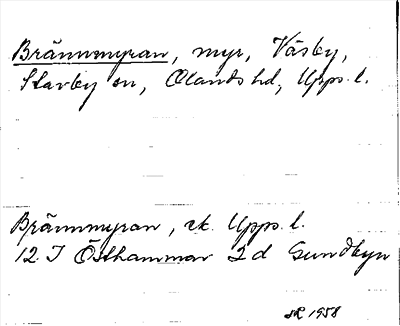 Brännmyran, myr, Väsby,
Stavby sn, Olands hd, Upps. l.
Brännmyran, ek. Upps. l.
12 I Östhammar 2 d Sundbyn
1958